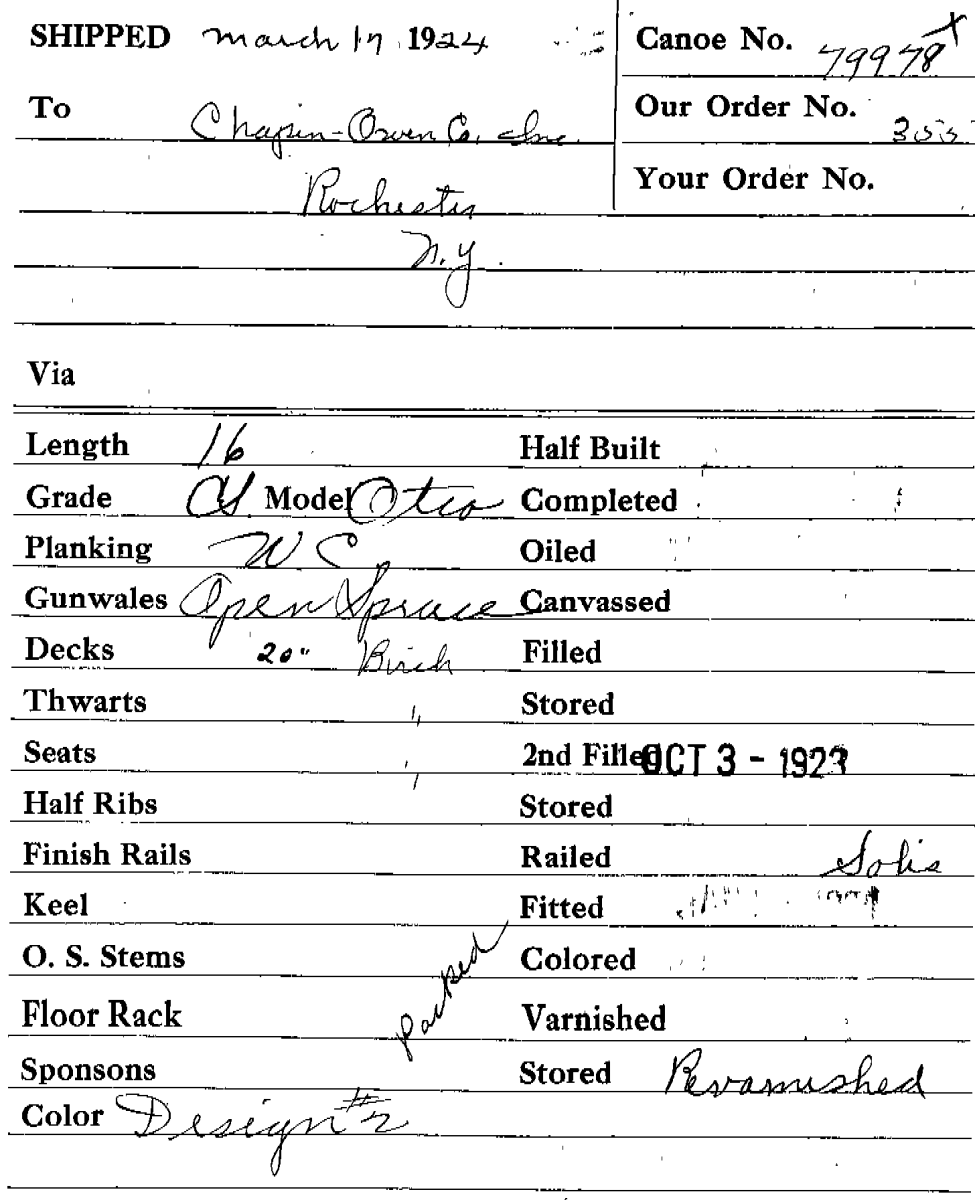 SHIPPED March 17 1924
Canoe No. 79978 x
To Chapin-Owen Co. Inc.
Our Order No. 355
Rochester
Your Order No.
N.Y.
Via
Length 16
Half Built
Grade CS Model Otca
Completed
Planking W C
Oiled
Gunwales Open Spruce
Canvassed
Decks 20" Birch
Filled
Thwarts "
Stored
Seats "
2nd Filled OCT 3 - 1923
Half Ribs
Stored
Finish Rails
Railed
Keel
Fitted
O. S. Stems
Colored
Floor Rack
packed
Varnished
Sponsons
Stored Revarnished
Color Design #2